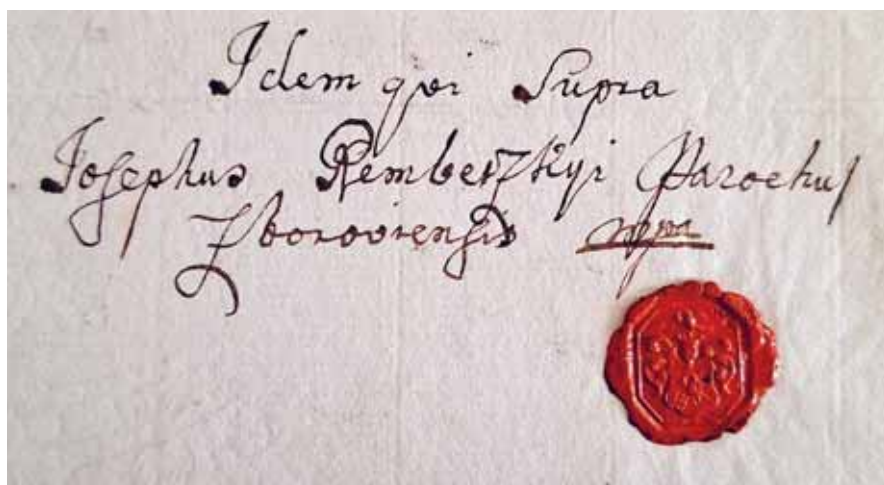 Idem qvi Supra
Josephus Remberszkyi Parochus
Zboroviensis mpa